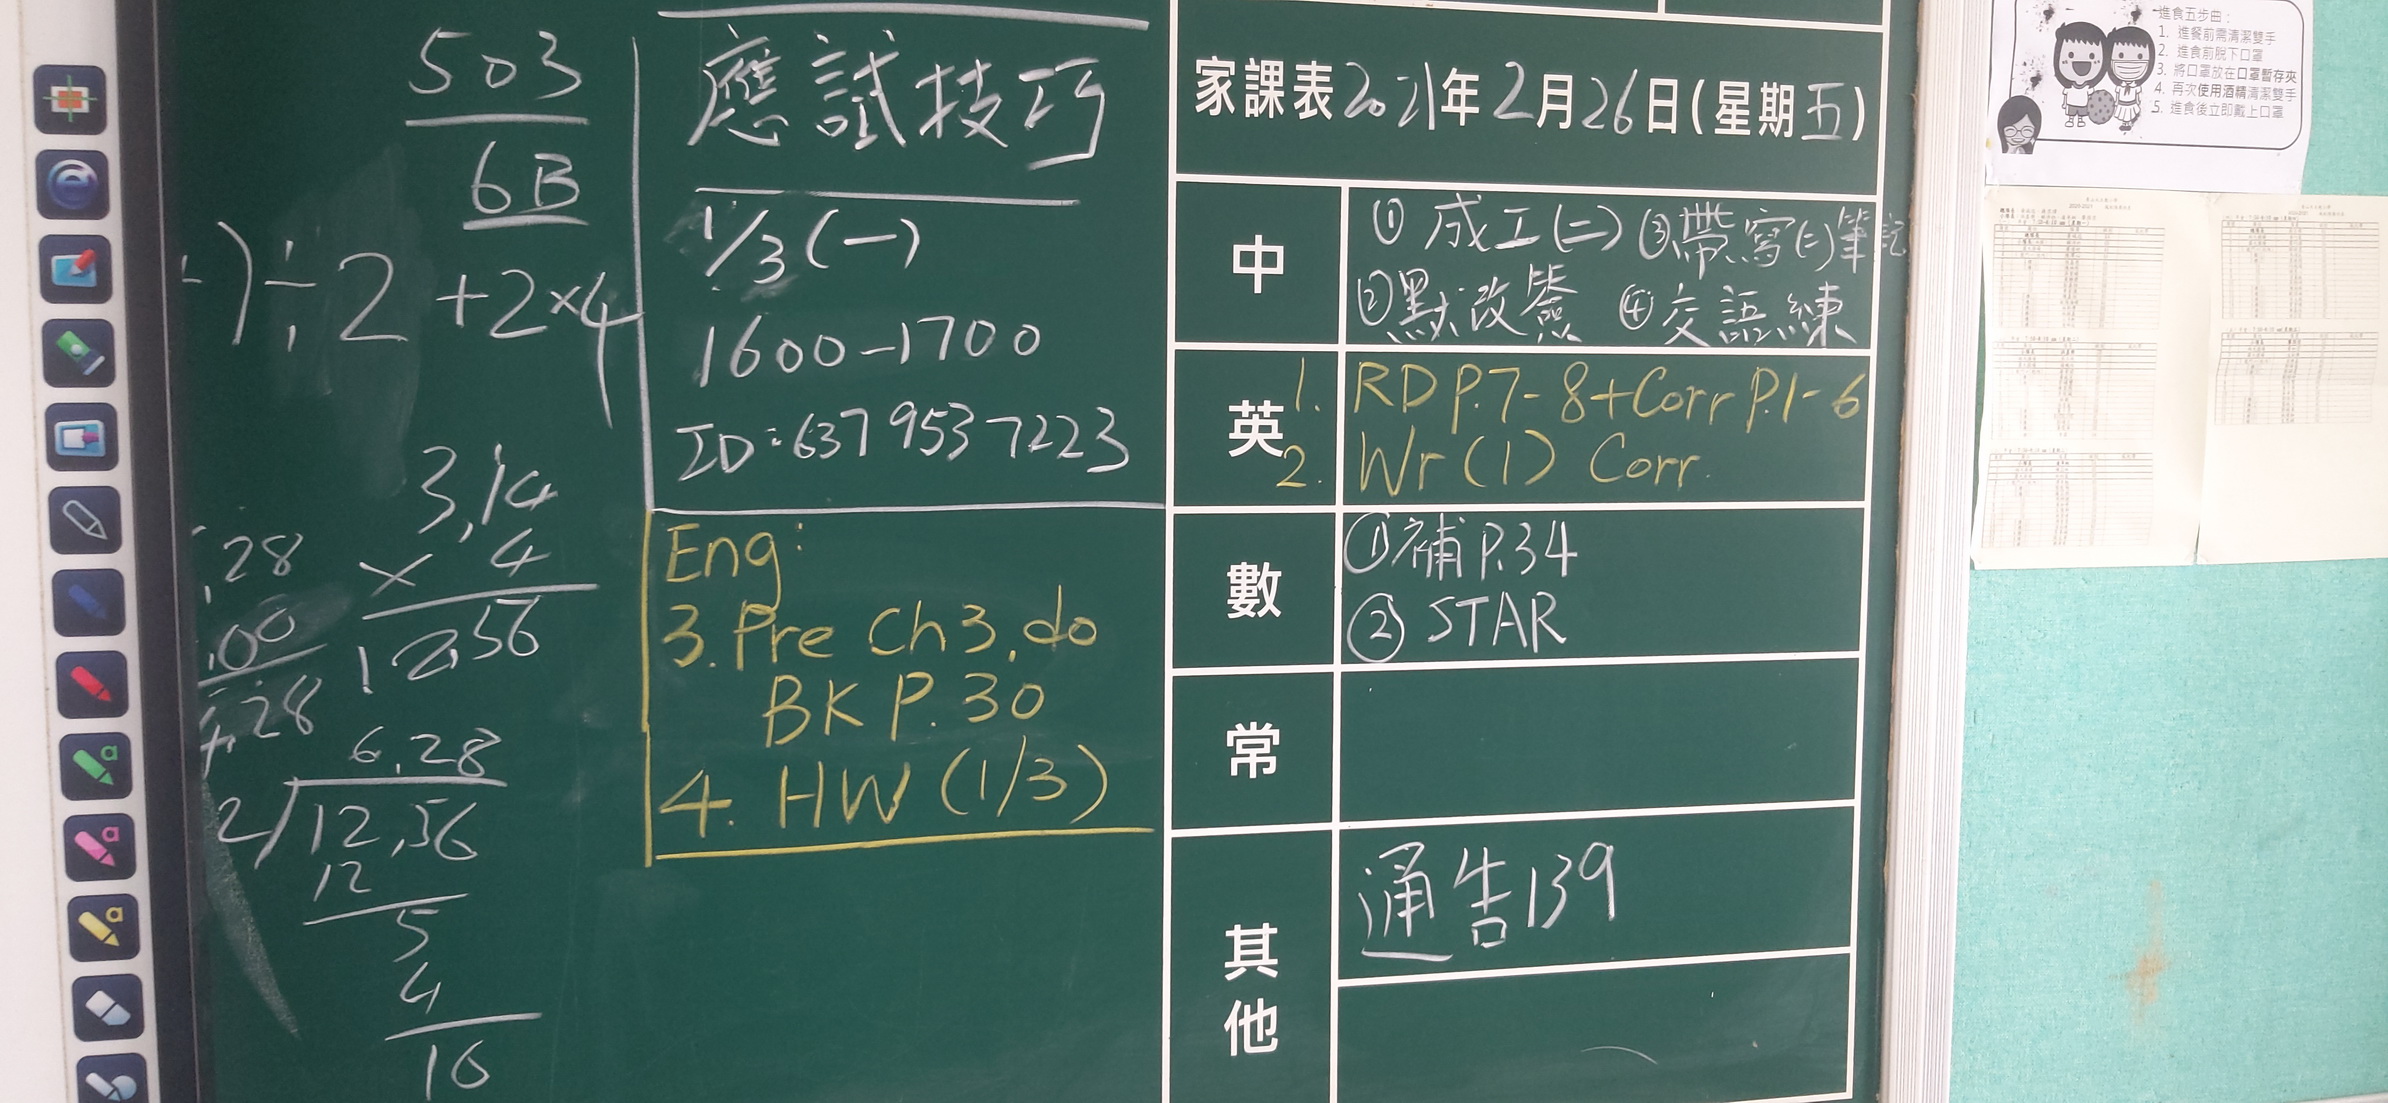 503
6B
)÷2+2×4
3.14
× 4
12.56
.28
.00
.28
6.28
2
12.56
12
5
4
16
應試技巧
1/3(一)
1600-1700
ID:637 953 7223
Eng:
3. Pre Ch3, do
BK P.30
4. HW (1/3)
家課表2021年2月26日(星期五)
中
① 成工(二) ③帶寫(二)筆記
②默改簽 ④交語練
英
1. RD P.7-8+Corr P.1-6
2. Wr (1) Corr.
數
①補P.34
② STAR
常
其他
通告139
進食五步曲:
1. 進餐前需清潔雙手
2. 進食前脫下口罩
3. 將口罩放在口罩暫存夾
4. 再次使用酒精清潔雙手
5. 進食後立即戴上口罩